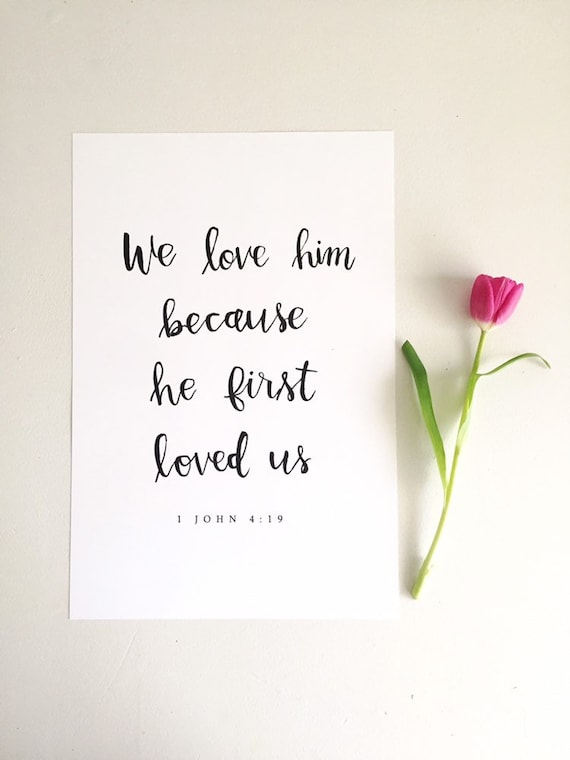 We love him
because
he first
loved us
1 JOHN 4:19